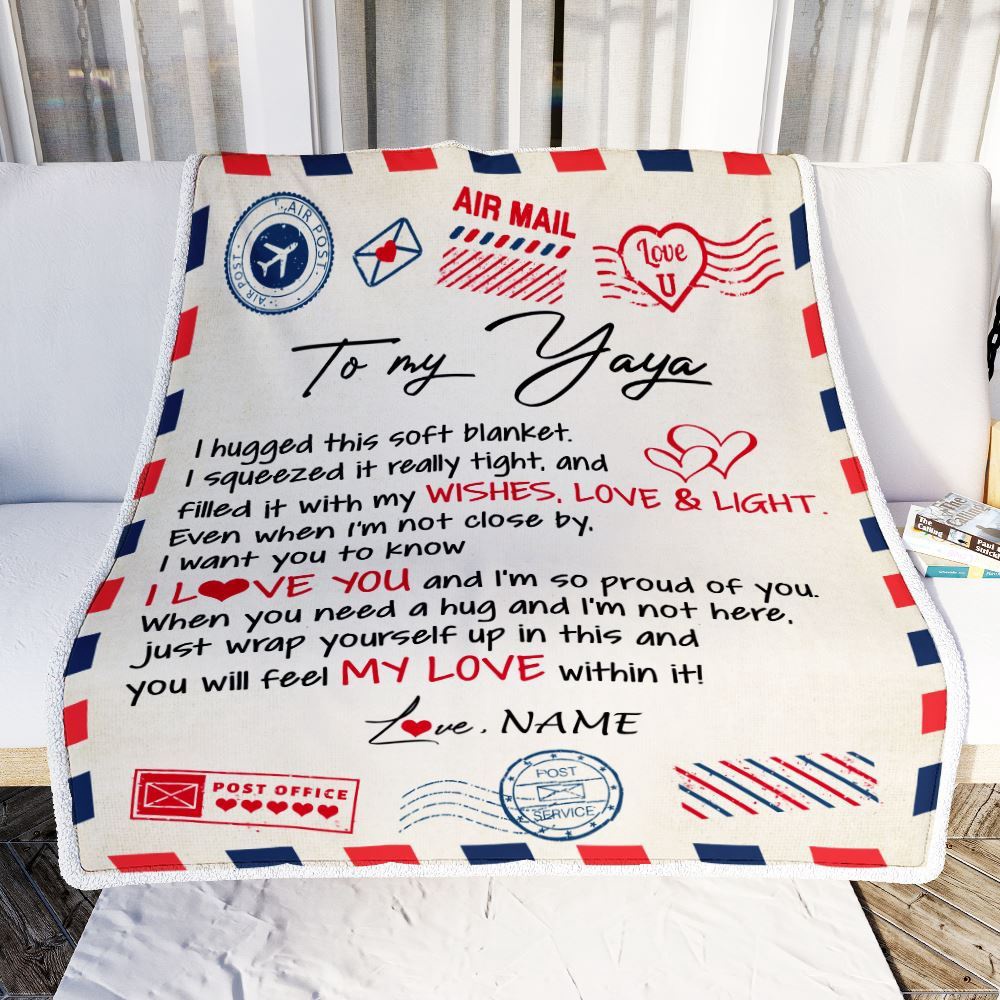 AIR POST
AIR POST
AIR MAIL
Love
U
To my Yaya
I hugged this soft blanket.
I squeezed it really tight, and
filled it with my WISHES, LOVE & LIGHT.
Even when I'm not close by,
I want you to know
I LOVE YOU and I'm so proud of you.
When you need a hug and I'm not here,
just wrap yourself up in this and
you will feel MY LOVE within it!
Love, NAME
POST OFFICE
POST
SERVICE
The
Calling
Paul